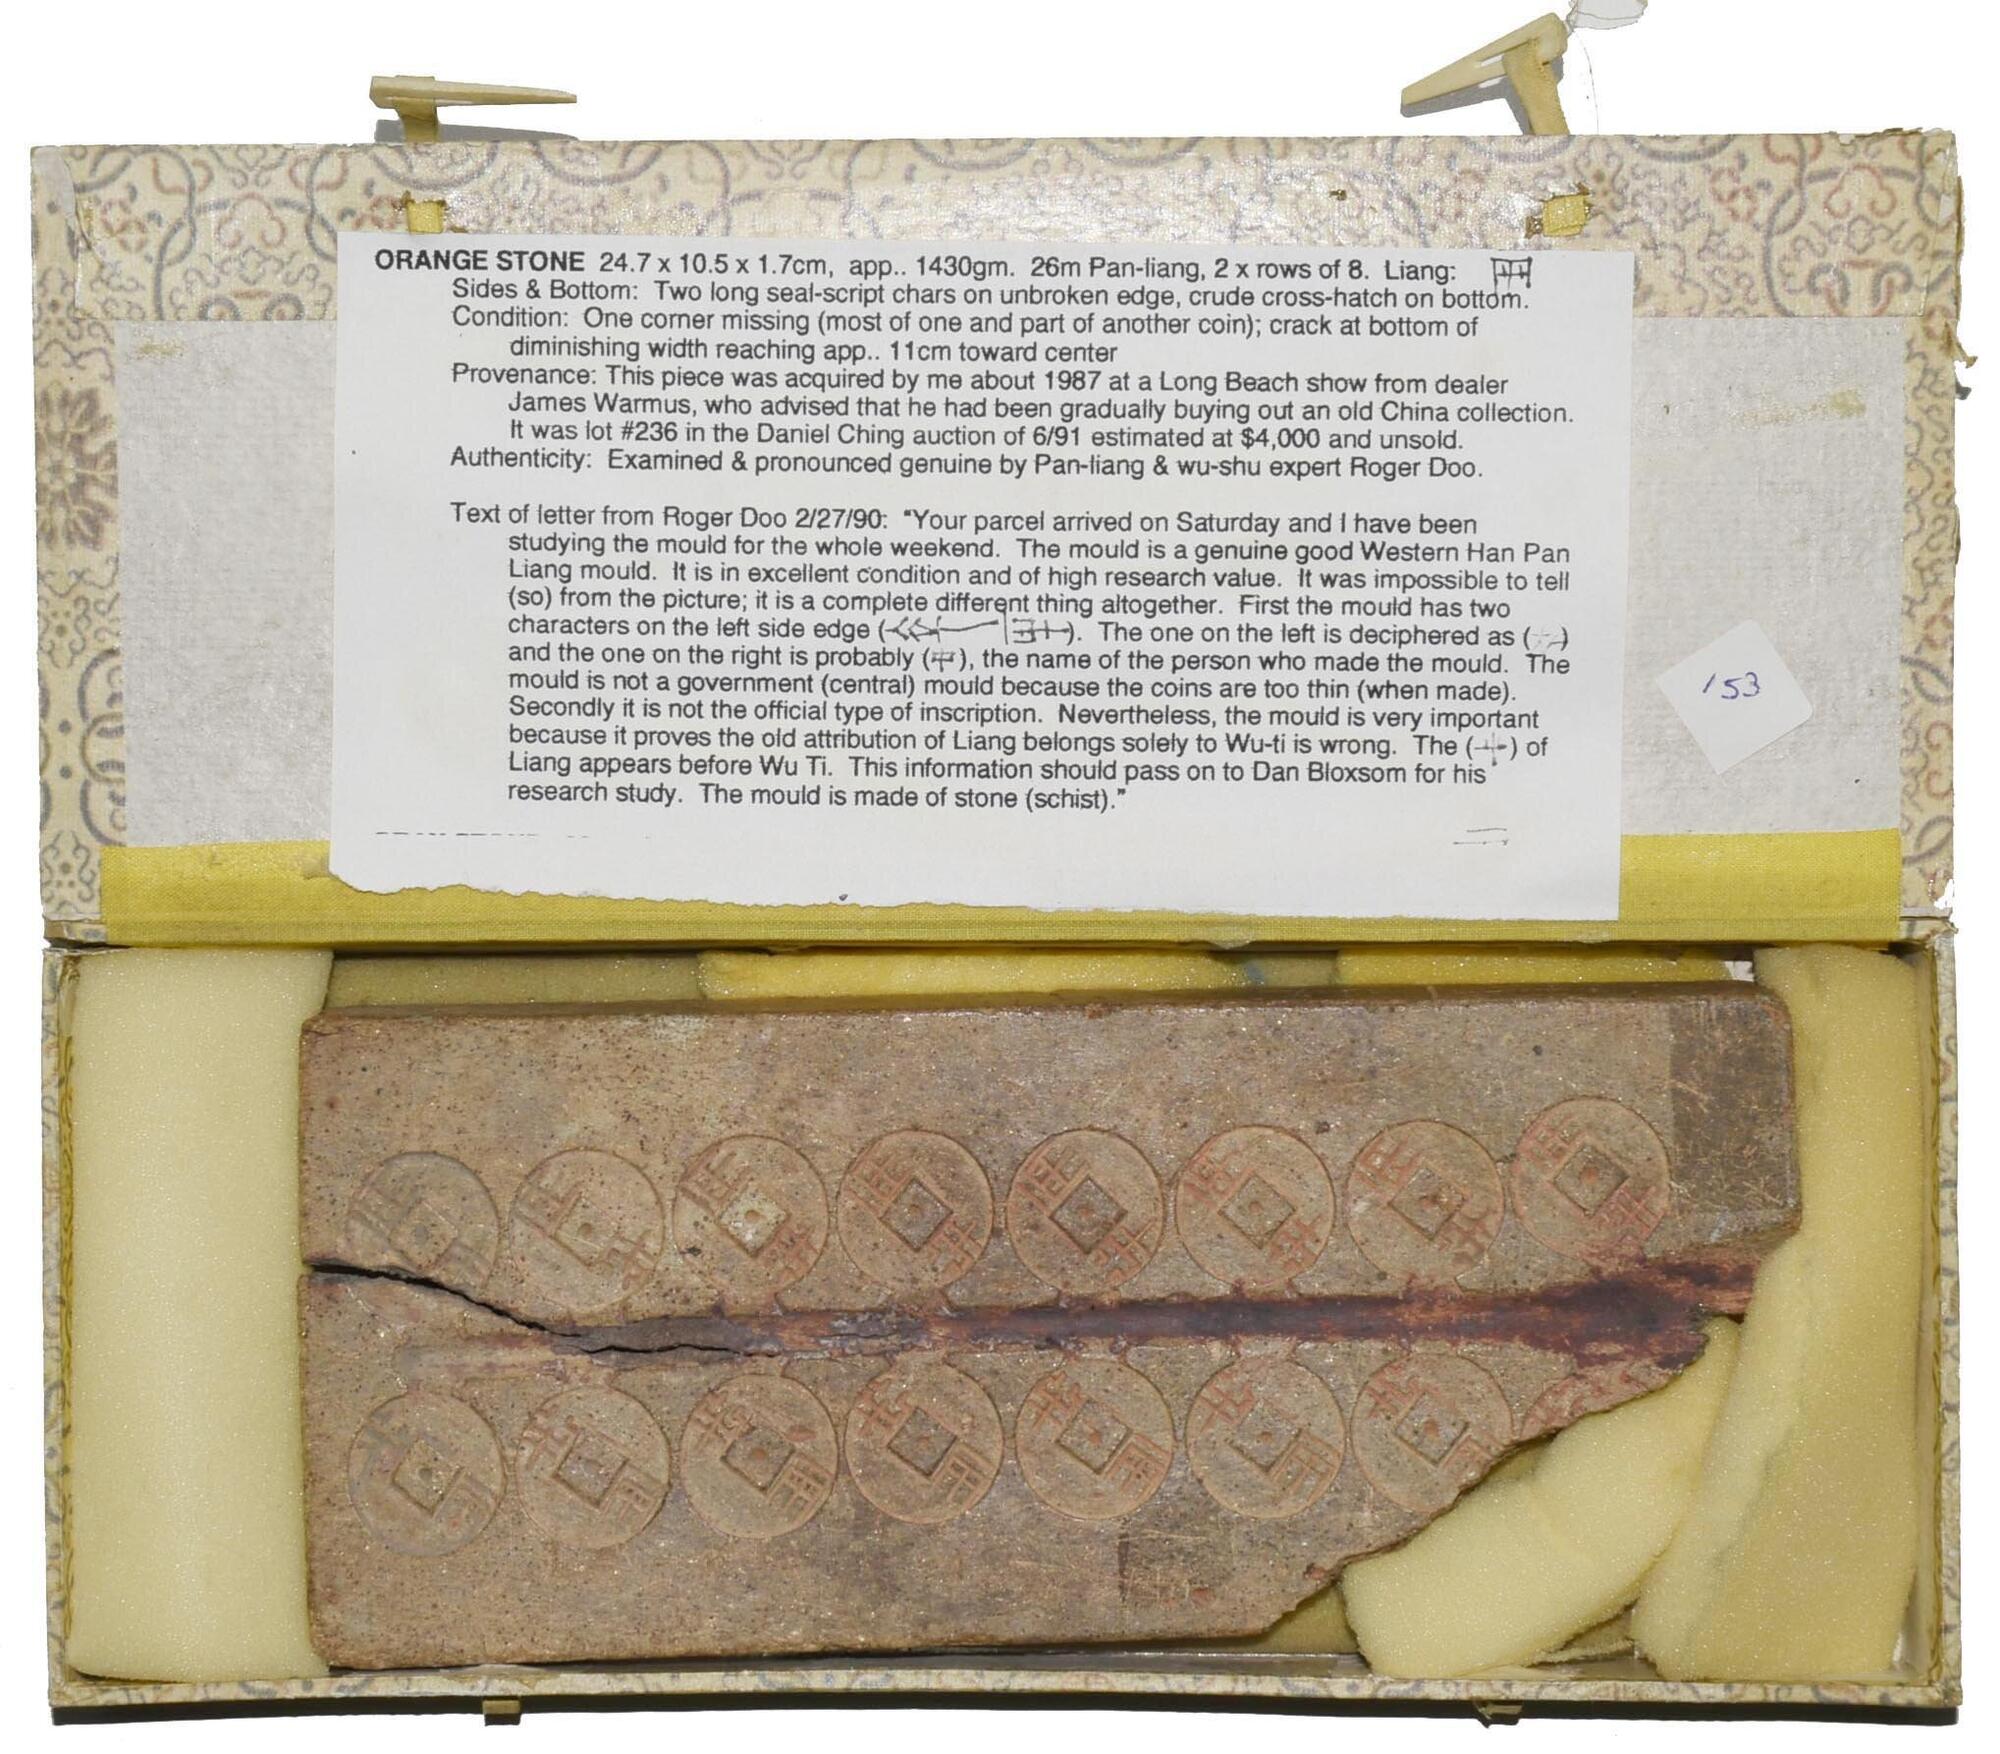 ORANGE STONE 24.7 x 10.5 x 1.7cm, app.. 1430gm. 26m Pan-liang, 2 x rows of 8. Liang:
Sides & Bottom: Two long seal-script chars on unbroken edge, crude cross-hatch on bottom.
Condition: One corner missing (most of one and part of another coin); crack at bottom of
diminishing width reaching app.. 11cm toward center
Provenance: This piece was acquired by me about 1987 at a Long Beach show from dealer
James Warmus, who advised that he had been gradually buying out an old China collection.
It was lot #236 in the Daniel Ching auction of 6/91 estimated at $4,000 and unsold.
Authenticity: Examined & pronounced genuine by Pan-liang & wu-shu expert Roger Doo.
Text of letter from Roger Doo 2/27/90: "Your parcel arrived on Saturday and I have been
studying the mould for the whole weekend. The mould is a genuine good Western Han Pan
Liang mould. It is in excellent condition and of high research value. It was impossible to tell
(so) from the picture; it is a complete different thing altogether. First the mould has two
characters on the left side edge ( ). The one on the left is deciphered as ( )
and the one on the right is probably ( ), the name of the person who made the mould. The
mould is not a government (central) mould because the coins are too thin (when made).
Secondly it is not the official type of inscription. Nevertheless, the mould is very important
because it proves the old attribution of Liang belongs solely to Wu-ti is wrong. The ( ) of
Liang appears before Wu Ti. This information should pass on to Dan Bloxsom for his
research study. The mould is made of stone (schist)."
153